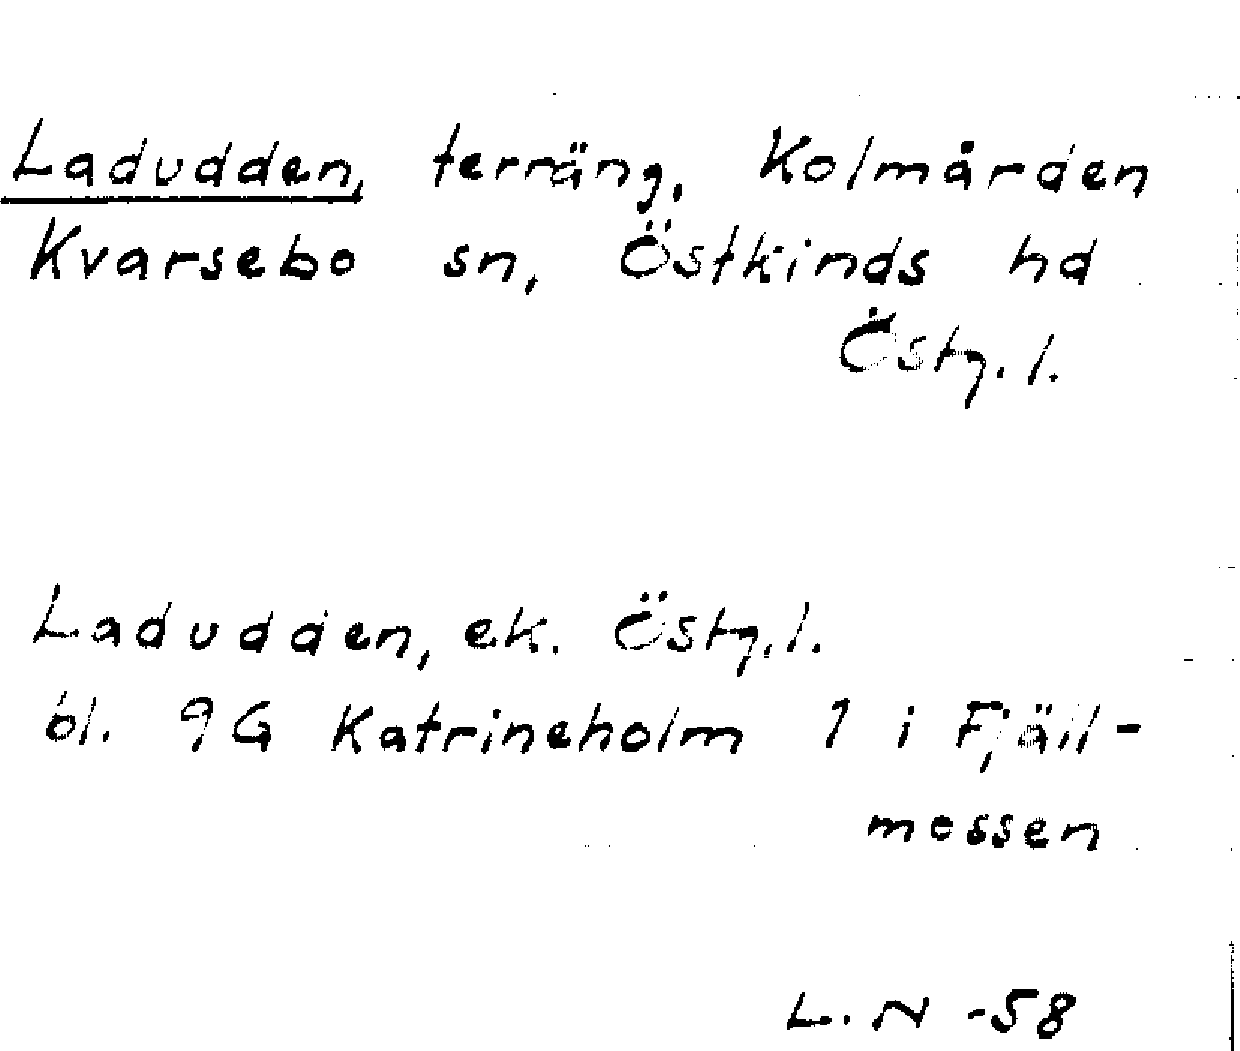 Ladudden, terräng, Kolmården
Kvarsebo sn, Östkinds hd
Östg.l.
Ladudden, ek. Östg.l.
bl. 9G Katrineholm 1 i Fjäll-
mossen
L.N -58